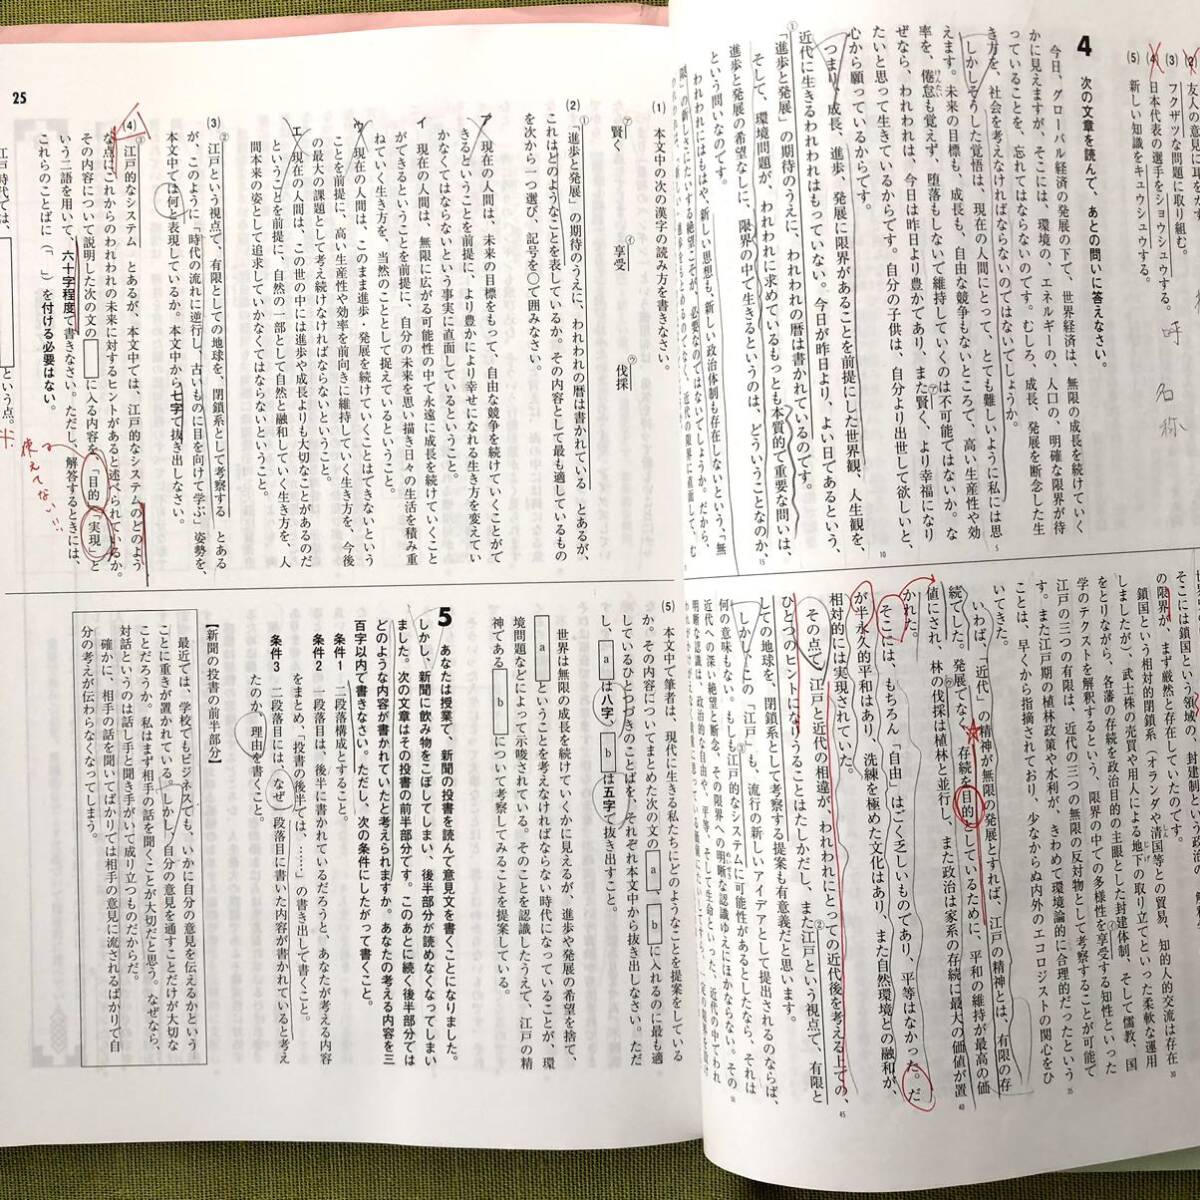 (2) 友人の
(3) フクザツな問題に取り組む。
(4) 日本代表の選手をショウシュウする。
(5) 新しい知識をキュウシュウする。
呼
名称
4 次の文章を読んで、あとの問いに答えなさい。
今日、グローバル経済の発展の下で、世界経済は、無限の成長を続けていく
かに見えますが、そこには、環境の、エネルギーの、人口の、明確な限界が待
っていることを、忘れてはならないのです。むしろ、成長、発展を断念した生
き方を、社会を考えなければならないのではないでしょうか。
しかしそうした覚悟は、現在の人間にとって、とても難しいように私には思
えます。未来の目標も、成長も、自由な競争もないところで、高い生産性や効
率を、倦怠も覚えず、堕落もしないで維持していくのは不可能ではないか。な
ぜなら、われわれは、今日は昨日より豊かであり、また賢く、より幸福になり
たいと思って生きているからです。自分の子供は、自分より出世して欲しいと、
心から願っているからです。
つまり、成長、進歩、発展に限界があることを前提にした世界観、人生観を、
近代に生きるわれわれはもっていない。今日が昨日より、よい日であるという
①「進歩と発展」の期待のうえに、われわれの暦は書かれているのです。
そして、環境問題が、われわれに求めているもっとも本質的で重要な問いは、
進歩と発展の希望なしに、限界の中で生きるというのは、どういうことなのか、
という問いなのです。
われわれにはもはや、新しい思想も、新しい政治体制も存在しないという、「無
そこには鎖国という領域の、封建制という政治の
の限界が、まず厳然と存在していたのです。
鎖国という相対的閉鎖系（オランダや清国等との貿易、知的人的交流は存在
しましたが）、武士株の売買や用人による地下の取り立てといった柔軟な運用
をとりながら、各藩の存続を政治目的の主眼とした封建体制、そして儒教、国
学のテクストを解釈するという、限界の中での多様性を享受する知性といった
江戸の三つの有限は、近代の三つの無限の反対物として考察することが可能で
す。また江戸期の植林政策や水利が、きわめて環境論的に合理的だったという
ことは、早くから指摘されており、少なからぬ内外のエコロジストの関心をひ
いてきた。
いわば、「近代」の精神が無限の発展とすれば、江戸の精神とは、有限の存
続でした。発展でなく、存続を目的としているために、平和の維持が最高の価
値にされ、林の伐採は植林と並行し、また政治は家系の存続に最大の価値が置
かれた。
そこには、もちろん「自由」はごく乏しいものであり、平等はなかった。だ
が半永久的平和はあり、洗練を極めた文化はあり、また自然環境との融和が、
相対的には実現されていた。
その点で、江戸と近代の相違が、われわれにとっての近代後を考える上での、
ひとつのヒントになりうることはたしかだし、また江戸という視点で、有限と
しての地球を、閉鎖系として考察する提案も有意義だと思います。
しかし、この「江戸」も、流行の新しいアイデアとして提出されるのならば、
何の意味もない。もしも江戸的なシステムに可能性があるとするなら、それは
近代への深い絶望と断念、その限界への明晰な認識ゆえにほかならない。その
25
(1) 本文中の次の漢字の読み方を書きなさい。
㋐ 賢く ㋑ 享受 ㋒ 伐採
(2) ①「進歩と発展」の期待のうえに、われわれの暦は書かれている とあるが、
これはどのようなことを表しているか。その内容として最も適しているもの
を次から一つ選び、記号を○で囲みなさい。
ア 現在の人間は、未来の目標をもって、自由な競争を続けていくことがで
きるということを前提に、より豊かにより幸せになれる生き方を変えてい
かなくてはならないという事実に直面しているということ。
イ 現在の人間は、無限に広がる可能性の中で永遠に成長を続けていくこと
ができるということを前提に、自分の未来を思い描き日々の生活を積み重
ねていく生き方を、当然のこととして捉えているということ。
ウ 現在の人間は、このまま進歩・発展を続けていくことはできないという
ことを前提に、高い生産性や効率を前向きに維持していく生き方を、今後
の最大の課題として考え続けなければならないということ。
エ 現在の人間は、この世の中には進歩や成長よりも大切なことがあるのだ
ということを前提に、自然の一部として自然と融和していく生き方を、人
間本来の姿として追求していかなくてはならないということ。
(3) ②江戸という視点で、有限としての地球を、閉鎖系として考察する とある
が、このように「時代の流れに逆行し、古いものに目を向けて学ぶ」姿勢を、
本文中では何と表現しているか。本文中から七字で抜き出しなさい。
(4) ③江戸的なシステム とあるが、本文中では、江戸的なシステムのどのよう
な点にこれからのわれわれの未来に対するヒントがあると述べられているか。
その内容について説明した次の文の□に入る内容を、「目的」「実現」と
いう二語を用いて、六十字程度で書きなさい。ただし、解答するときには、
これらのことばに「 」を付ける必要はない。
使えてない!!
江戸時代では、□という点。
(5) 本文中で筆者は、現代に生きる私たちにどのようなことを提案をしている
か。その内容についてまとめた次の文の a 、 b に入れるのに最も適
しているひとつづきのことばを、それぞれ本文中から抜き出しなさい。ただ
し、 a は八字、 b は五字で抜き出すこと。
世界は無限の成長を続けていくかに見えるが、進歩や発展の希望を捨て、
a ということを考えなければならない時代になっていることが、環
境問題などによって示唆されている。そのことを認識したうえで、江戸の精
神である b を考察することを提案している。
5 あなたは授業で、新聞の投書を読んで意見文を書くことになりました。
しかし、新聞に飲み物をこぼしてしまい、後半部分が読めなくなってしまい
ました。次の文章はその投書の前半部分です。このあとに続く後半部分では
どのような内容が書かれていたと考えられますか。あなたの考える内容を三
百字以内で書きなさい。ただし、次の条件にしたがって書くこと。
条件1 二段落構成とすること。
条件2 一段落目は、後半に書かれているだろうと、あなたが考える内容
をまとめ、「投書の後半では、……」の書き出しで書くこと。
条件3 二段落目には、なぜ一段落目に書いた内容が書かれていると考え
たのか、理由を書くこと。
【新聞の投書の前半部分】
最近では、学校でもビジネスでも、いかに自分の意見を伝えるかという
ことに重きが置かれている。しかし、自分の意見を通すことだけが大切な
ことだろうか。私はまず相手の話を聞くことが大切だと思う。なぜなら、
対話というのは話し手と聞き手がいて成り立つものだからだ。
確かに、相手の話を聞いてばかりでは相手の意見に流されるばかりで自
分の考えが伝わらなくなってしまう。